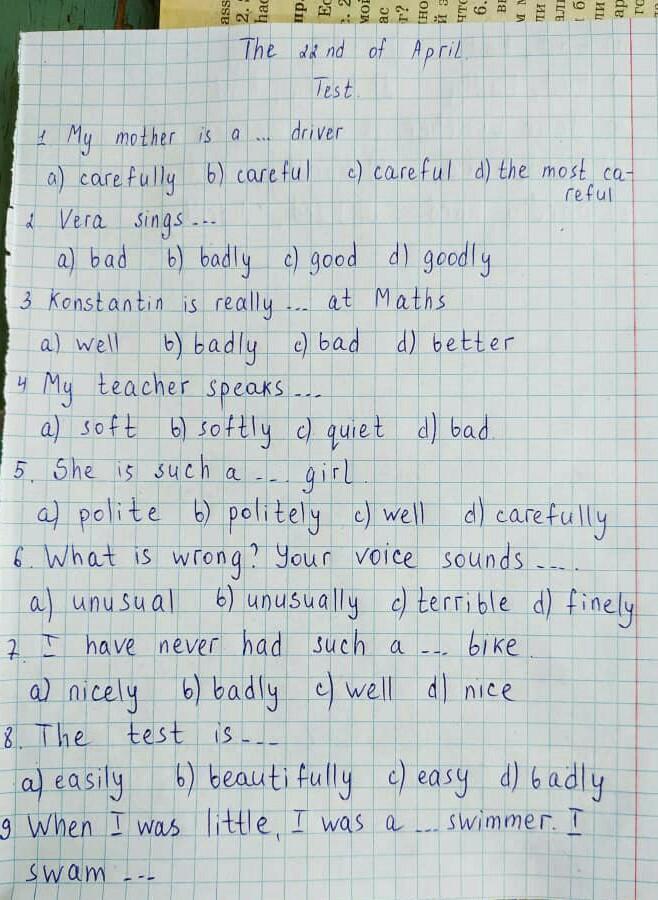 The 22nd of April.
Test.
1 My mother is a ... driver
a) carefully b) careful c) careful d) the most ca-
reful
2 Vera sings ...
a) bad b) badly c) good d) goodly
3 Konstantin is really ... at Maths
a) well b) badly c) bad d) better
4 My teacher speaks ...
a) soft b) softly c) quiet d) bad.
5. She is such a ... girl.
a) polite b) politely c) well d) carefully
6. What is wrong? Your voice sounds ....
a) unusual b) unusually c) terrible d) finely
7. I have never had such a ... bike.
a) nicely b) badly c) well d) nice
8. The test is ...
a) easily b) beautifully c) easy d) badly
9 When I was little, I was a ... swimmer. I
swam ...